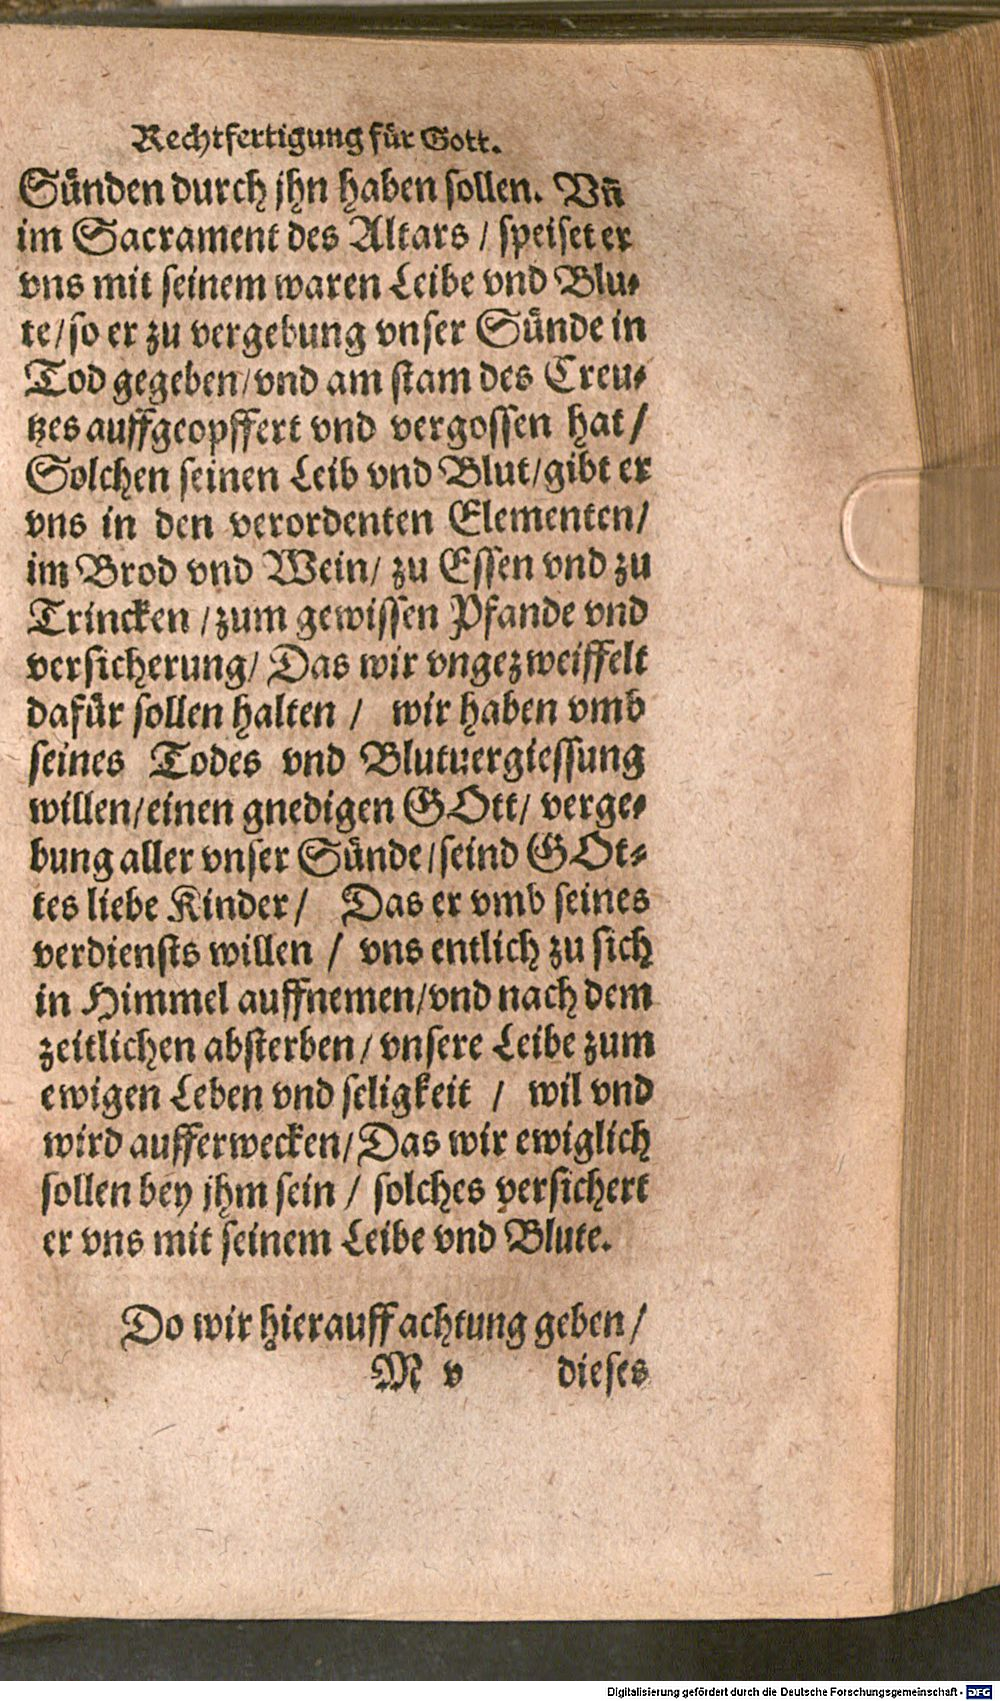 Rechtfertigung für Gott.
Sünden durch jhn haben sollen. Vñ
im Sacrament des Altars / speiset er
vns mit seinem waren Leibe vnd Blu-
te/so er zu vergebung vnser Sünde in
Tod gegeben/vnd am stam des Creu-
tzes auffgeopffert vnd vergossen hat/
Solchen seinen Leib vnd Blut/gibt er
vns in den verordenten Elementen/
im Brod vnd Wein/ zu Essen vnd zu
Trincken /zum gewissen Pfande vnd
versicherung/ Das wir vngezweiffelt
dafür sollen halten / wir haben vmb
seines Todes vnd Blutuergiessung
willen/einen gnedigen GOtt/ verge-
bung aller vnser Sünde/seind GOt-
tes liebe Kinder/ Das er vmb seines
verdiensts willen / vns entlich zu sich
in Himmel auffnemen/vnd nach dem
zeitlichen absterben/vnsere Leibe zum
ewigen Leben vnd seligkeit / wil vnd
wird aufferwecken/Das wir ewiglich
sollen bey jhm sein / solches versichert
er vns mit seinem Leibe vnd Blute.
Do wir hierauff achtung geben/
M v dieses
Digitalisierung gefördert durch die Deutsche Forschungsgemeinschaft - DFG